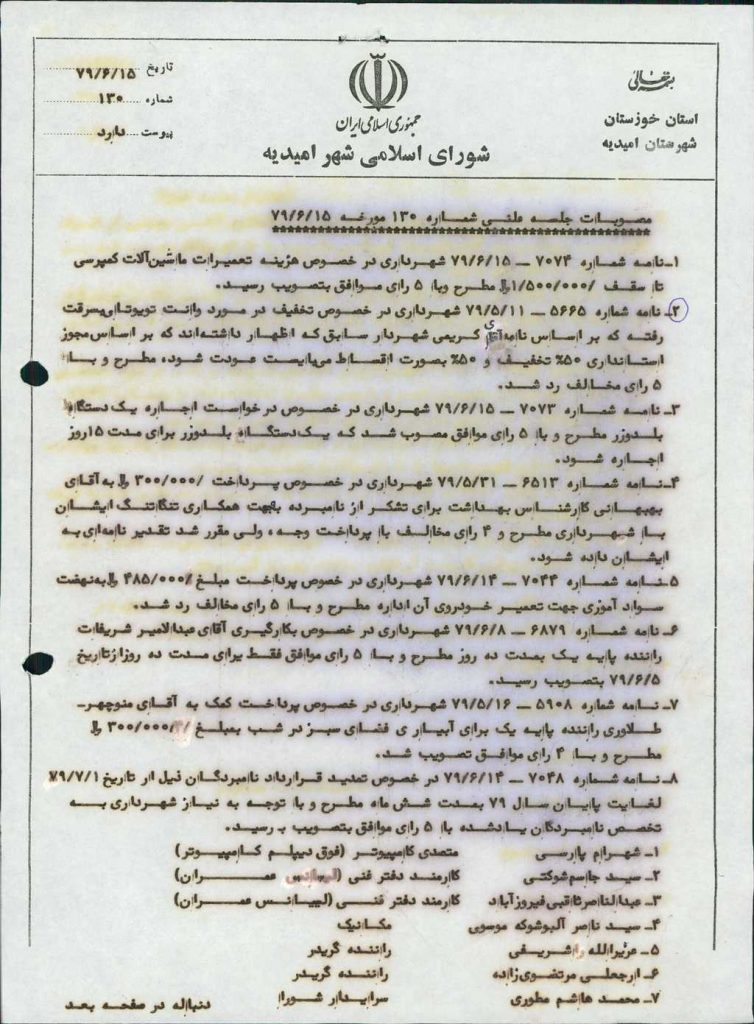 بسمه تعالی
استان خوزستان
شهرستان امیدیه
جمهوری اسلامی ایران
شورای اسلامی شهر امیدیه
تاریخ ۷۹/۶/۱۵
شماره ۱۳۰
پیوست دارد
مصوبات جلسه علنی شماره ۱۳۰ مورخه ۷۹/۶/۱۵
۱ـ نامه شماره ۷۰۷۴ ـ ۷۹/۶/۱۵ شهرداری در خصوص هزینه تعمیرات ماشین‌آلات کمپرسی
تا سقف ۱/۵۰۰/۰۰۰/ ﷼ مطرح وبا ۵ رای موافق بتصویب رسید.
۲ـ نامه شماره ۵۶۶۵ ـ ۷۹/۵/۱۱ شهرداری در خصوص تخفیف در مورد وانت تویوتای بسرقت
رفته که بر اساس نامه آقای کریمی شهردار سابق که اظهار داشته‌اند که بر اساس مجوز
استانداری ۵۰٪ تخفیف و ۵۰٪ بصورت اقساط می‌بایست عودت شود، مطرح و با
۵ رای مخالف رد شد.
۳ـ نامه شماره ۷۰۷۳ ـ ۷۹/۶/۱۵ شهرداری در خصوص درخواست اجاره یک دستگاه
بلدوزر مطرح و با ۵ رای موافق مصوب شد که یک دستگاه بلدوزر برای مدت ۱۵ روز
اجاره شود.
۴ـ نامه شماره ۶۵۱۳ ـ ۷۹/۵/۳۱ شهرداری در خصوص پرداخت ۳۰۰/۰۰۰/ ﷼ به آقای
بهبهانی کارشناس بهداشت برای تشکر از نامبرده بجهت همکاری تنگاتنگ ایشان
با شهرداری مطرح و ۴ رای مخالف با پرداخت وجه، ولی مقرر شد تقدیر نامه‌ای به
ایشان داده شود.
۵ـ نامه شماره ۷۰۴۴ ـ ۷۹/۶/۱۴ شهرداری در خصوص پرداخت مبلغ ۴۸۵/۰۰۰/ ﷼ به نهضت
سواد آموزی جهت تعمیر خودروی آن اداره مطرح و با ۵ رای مخالف رد شد.
۶ـ نامه شماره ۶۸۷۹ ـ ۷۹/۶/۸ شهرداری در خصوص بکارگیری آقای عبدالامیر شریفات
راننده پایه یک بمدت ده روز مطرح و با ۵ رای موافق فقط برای مدت ده روز از تاریخ
۷۹/۶/۵ بتصویب رسید.
۷ـ نامه شماره ۵۹۰۸ ـ ۷۹/۵/۱۶ شهرداری در خصوص پرداخت کمک به آقای منوچهر ـ
طلاوری راننده پایه یک برای آبیاری فضای سبز در شب بمبلغ ۳۰۰/۰۰۰/ ﷼
مطرح و با ۴ رای موافق تصویب شد.
۸ـ نامه شماره ۷۰۴۸ ـ ۷۹/۶/۱۴ در خصوص تمدید قرارداد نامبردگان ذیل از تاریخ ۷۹/۷/۱
لغایت پایان سال ۷۹ بمدت شش ماه مطرح و با توجه به نیاز شهرداری به
تخصص نامبردگان یادشده با ۵ رای موافق بتصویب رسید.
۱ـ شهرام پارسی متصدی کامپیوتر (فوق دیپلم کامپیوتر)
۲ـ سید جاسم شوکتی کارمند دفتر فنی (لیسانس عمران)
۳ـ عبدالناصر ثاقبی فیروزآباد کارمند دفتر فنی (لیسانس عمران)
۴ـ سید ناصر آلبوشوکه موسوی مکانیک
۵ـ عزیزالله شریفی راننده گریدر
۶ـ ارجعلی مرتضوی زاده راننده گریدر
۷ـ محمد هاشم مطوری سرایدار شورا
دنباله در صفحه بعد